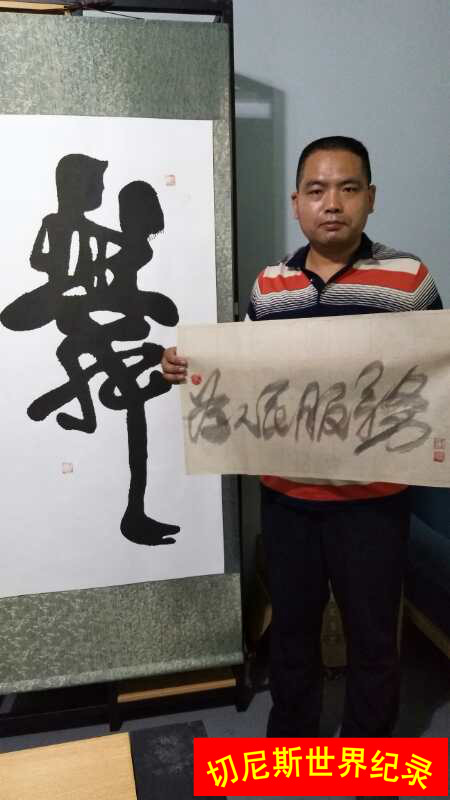 为人民服务
切尼斯世界纪录